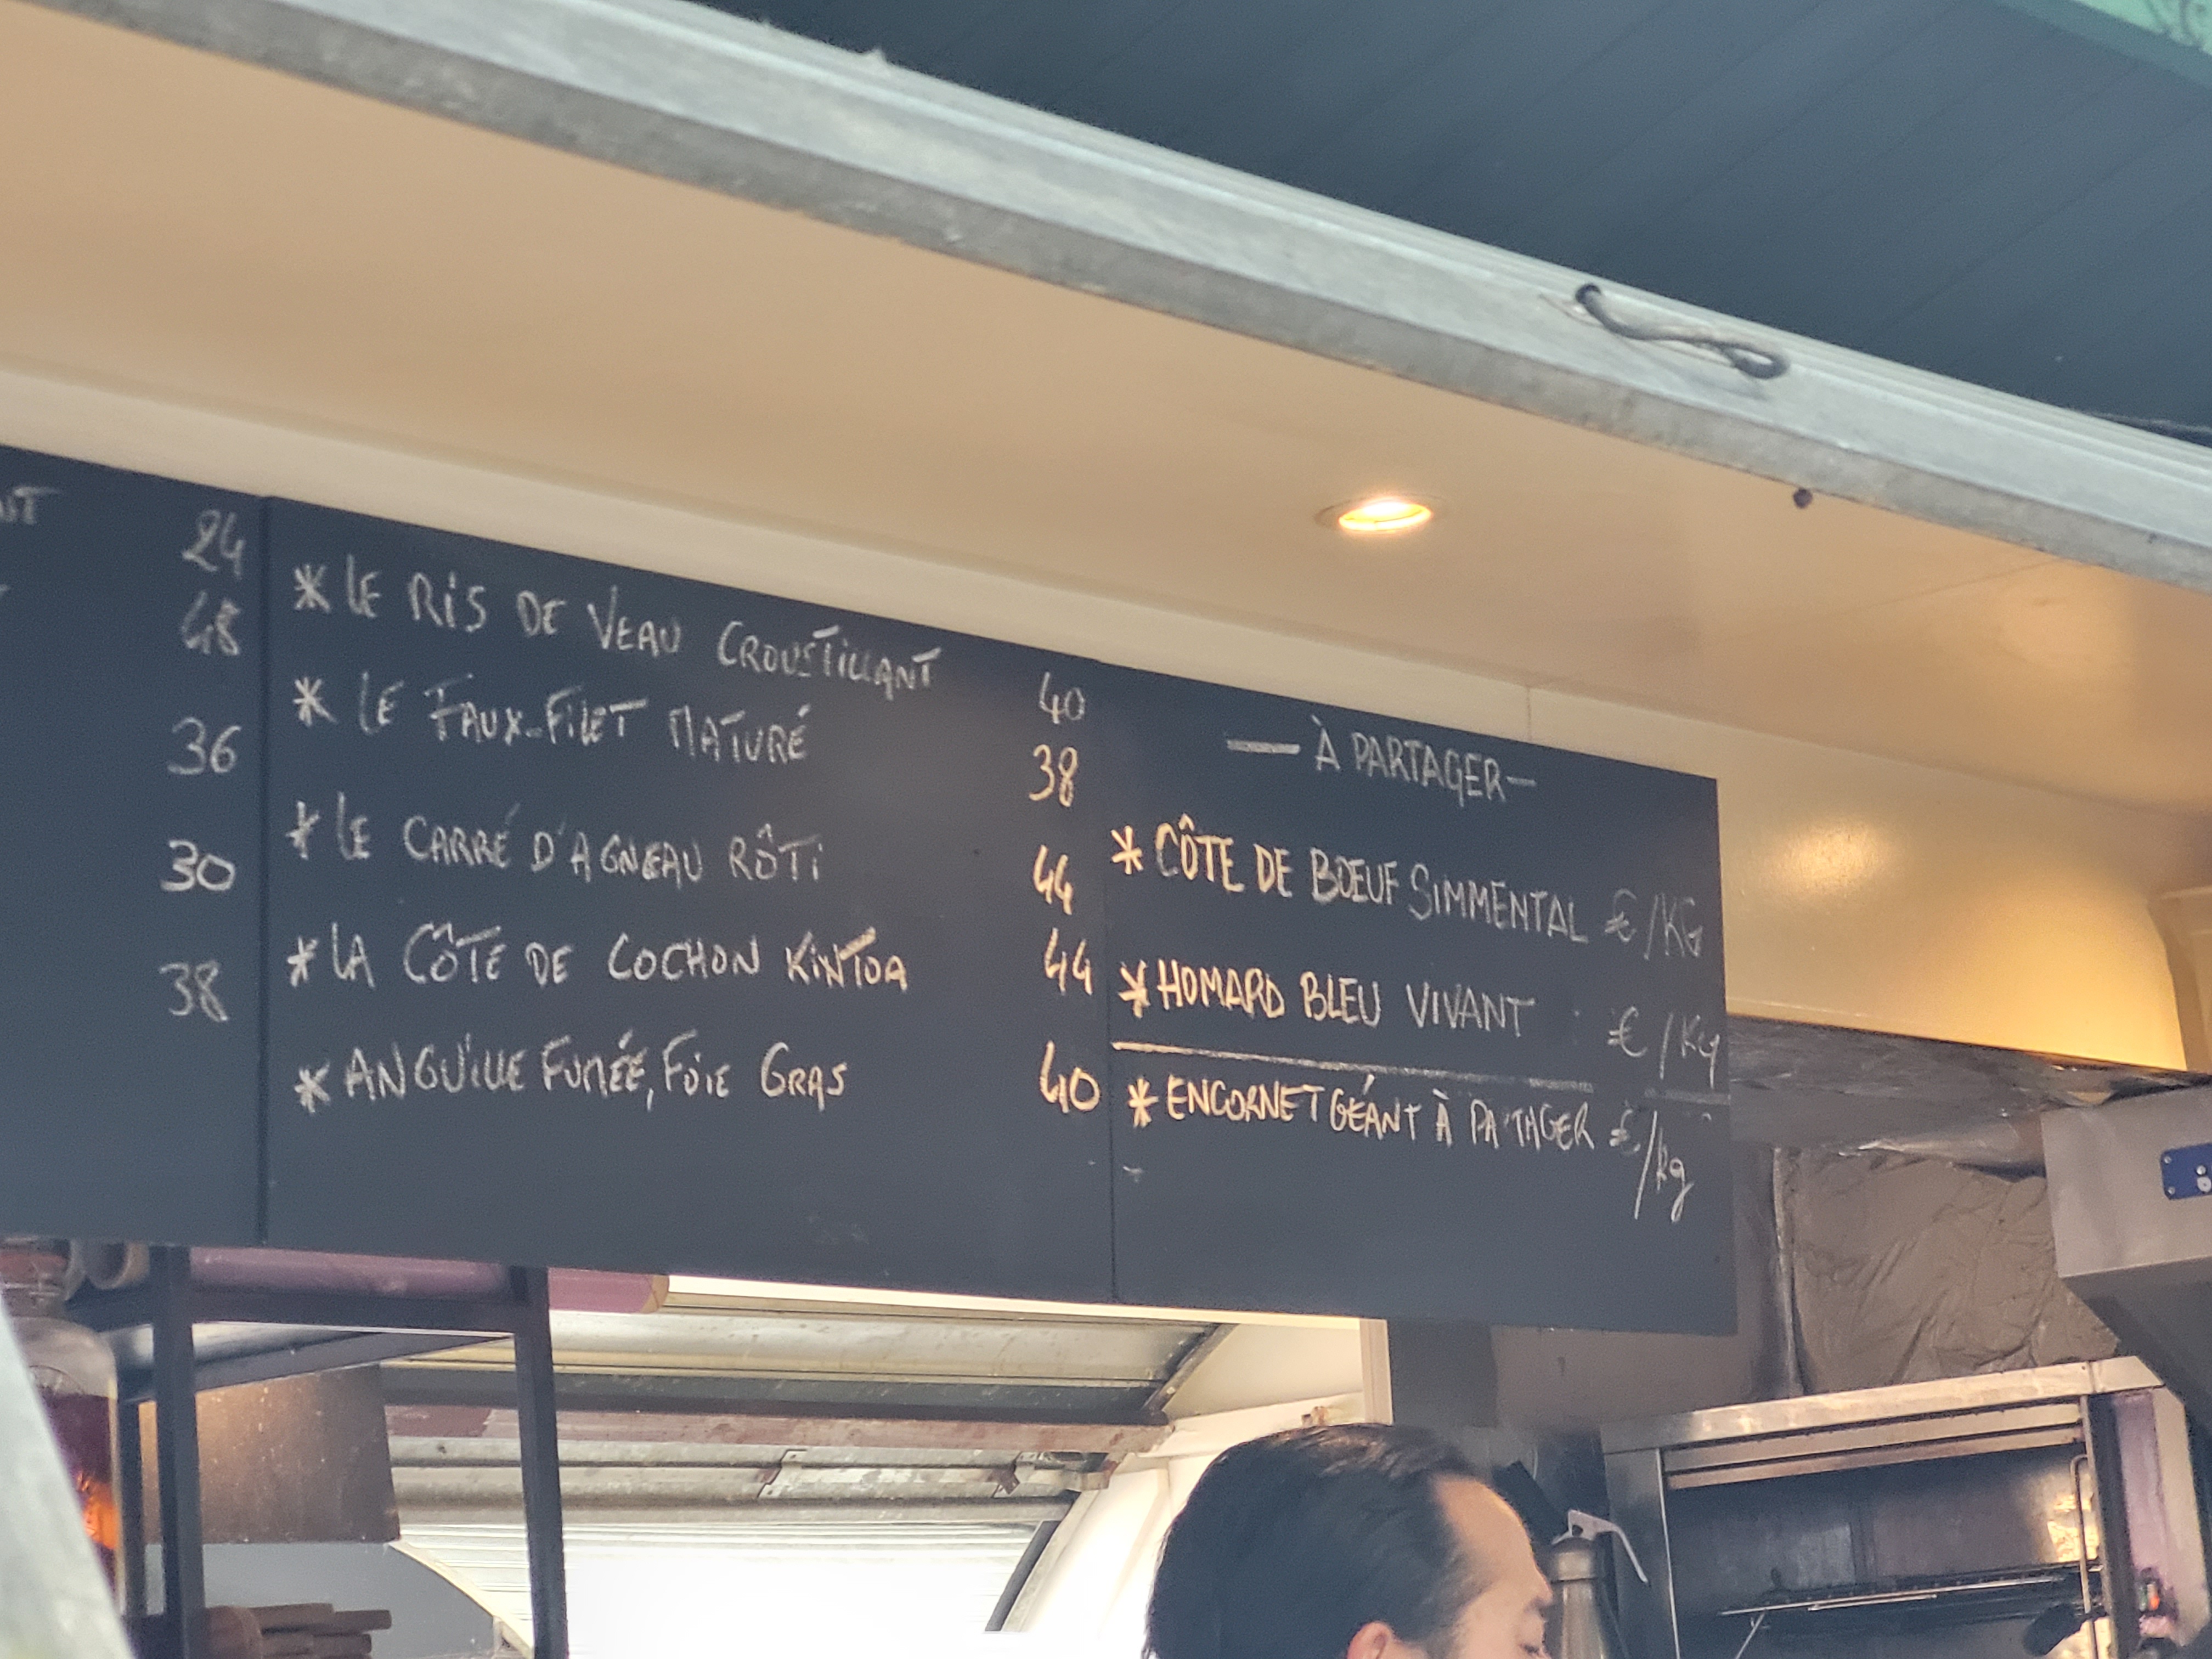 24
48
36
30
38
* LE RIS DE VEAU CROUSTILLANT 40
* LE FAUX-FILET MATURÉ 38
* LE CARRÉ D'AGNEAU RÔTI 44
* LA CÔTE DE COCHON KINTOA 44
* ANGUILLE FUMÉE, FOIE GRAS 40
— À PARTAGER —
* CÔTE DE BOEUF SIMMENTAL €/KG
* HOMARD BLEU VIVANT : € /Kg
* ENCORNET GÉANT À PARTAGER €/kg